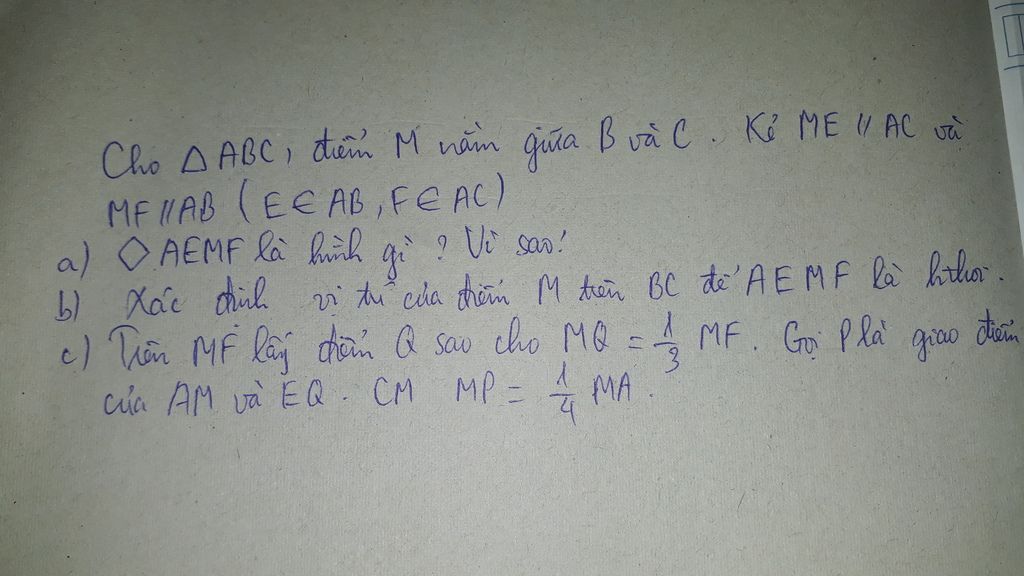 Cho △ABC, điểm M nằm giữa B và C. Kẻ ME // AC và
MF // AB (E ∈ AB, F ∈ AC)
a) ◇ AEMF là hình gì? Vì sao!
b) Xác định vị trí của điểm M trên BC để AEMF là hthoi.
c) Trên MF lấy điểm Q sao cho MQ = 1/3 MF. Gọi P là giao điểm
của AM và EQ. CM MP = 1/4 MA.